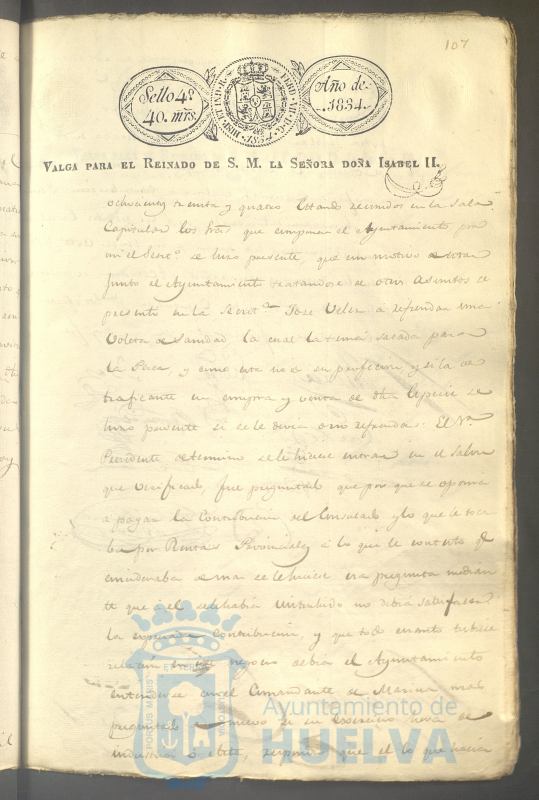 107
Sello 4º
40. mrs.
HISP. ET IND. R. FERD. VII. D. G.
1834
Año de
1834.
VALGA PARA EL REINADO DE S. M. LA SEÑORA DOÑA ISABEL II.
ochocientos treinta y quatro Estando reunidos en la Sala
Capitular los Sres que componen el Ayuntamiento por
mi el Sectº se hizo presente, que con motivo de estar
Junto el Ayuntamiento tratandose de otros Asuntos se
presentó en la Secret Jose Velez a refrendar una
Voleta de Sanidad la cual la tenia sacada para
la Pesca, y como esta no es su profesion y si la de
traficante en compra y venta de dha Especie se
hizo presente si se le devia o no refrendar: El Sr.
Presidente determino se le hiciese entrar en el Salon
que verificado, fue preguntado que por que se oponia
a pagar la Contribucion del Consulado y lo que le toca
ba por Rentas Provinciales a lo que le contesto q.
consideraba demas se le hiciese esa pregunta median
te que a el se le habia no debia satisfaser
la espresada Contribucion, y que todo cuanto tubiese
relacion negocio debia el Ayuntamiento
entenderse con el Comandante de Marina mas
preguntado nuevo si su exercicio hera de
industria o , respondio que el lo que hacia
PORTUS MARIS ET TERRAE CUSTODIA
Ayuntamiento de
HUELVA